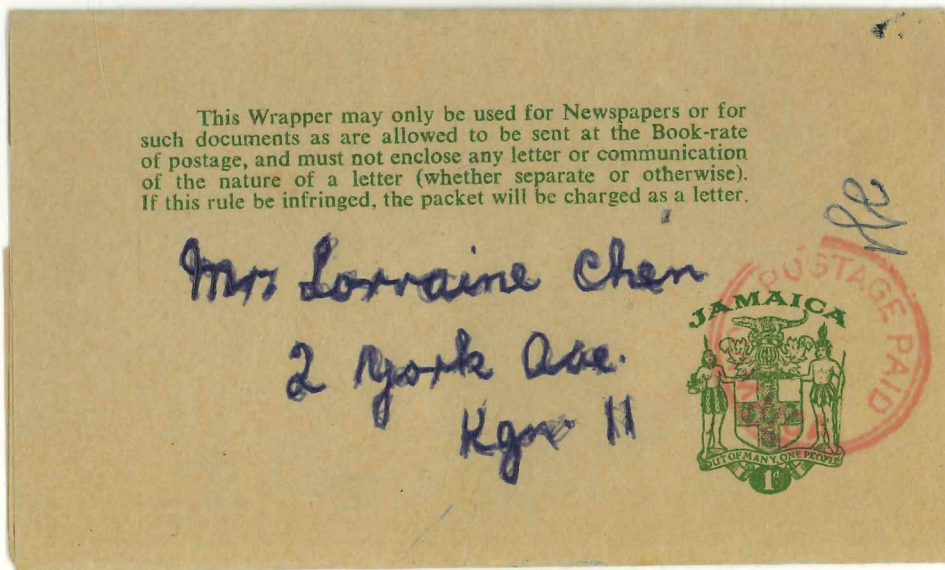 This Wrapper may only be used for Newspapers or for
such documents as are allowed to be sent at the Book-rate
of postage, and must not enclose any letter or communication
of the nature of a letter (whether separate or otherwise).
If this rule be infringed, the packet will be charged as a letter.
Mrs Lorraine Chen
2 York Ave.
Kgn. 11
POSTAGE PAID
JAMAICA
OUT OF MANY, ONE PEOPLE
1D